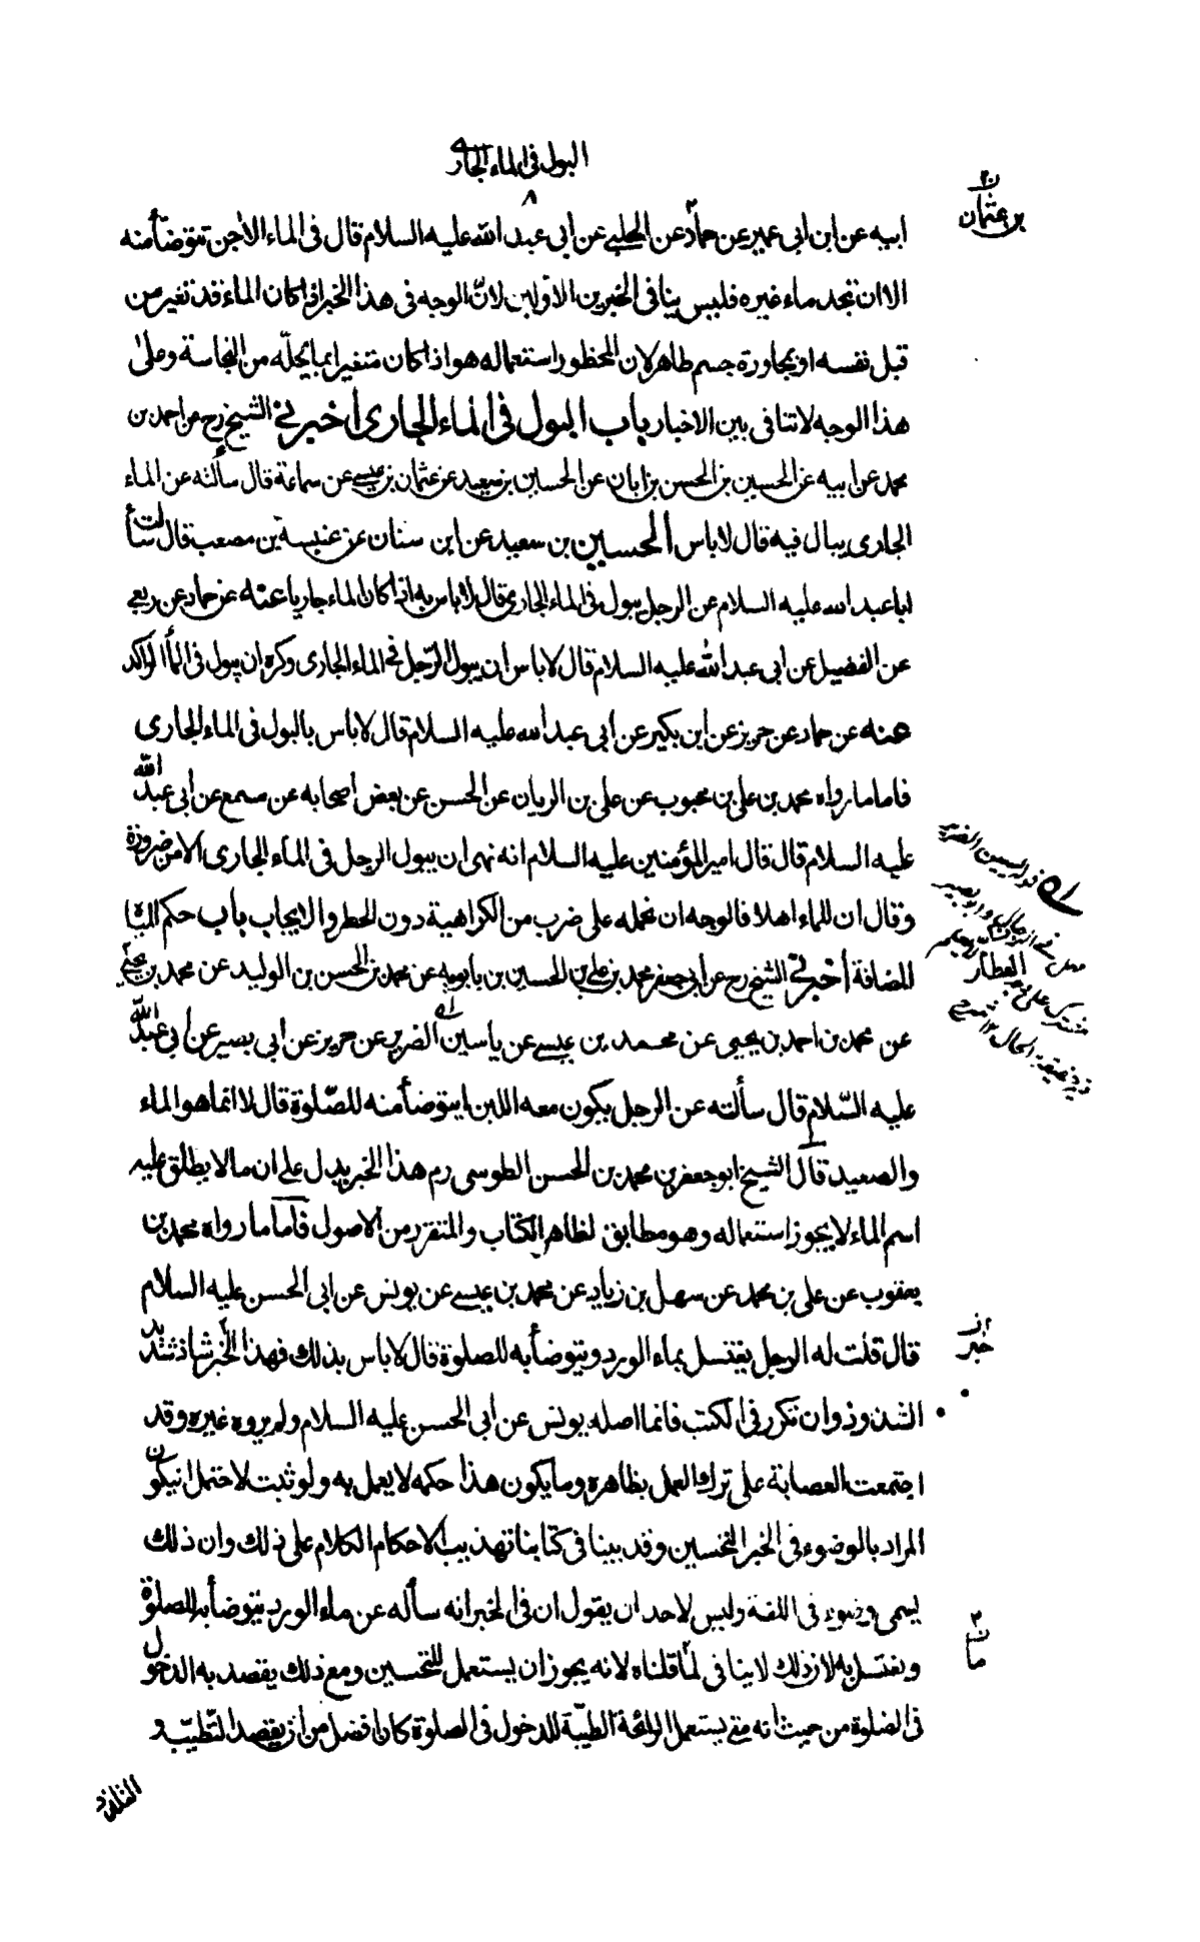 البول فى الماء الجارى
٨
ن٢
بن عثمان
ابيه عن ابن ابى عمير عن حماد عن الحلبى عن ابى عبد الله عليه السلام قال فى الماء الاجن تتوضأ منه
الا ان تجد ماء غيره فليس ينافى الخبرين الاولين لانّ الوجه فى هذا الخبر اذا كان الماء قد تغير من
قبل نفسه او بمجاورة جسم طاهر لان المحظور استعماله هو اذا كان متغيرا بما يحلّه من النجاسة وعلى
هذا الوجه لا تنافى بين الاخبار باب البول فى الماء الجارى أخبرنى الشيخ رح عن احمد بن
محمد عن ابيه عن الحسين بن الحسن بن ابان عن الحسين بن سعيد عن عثمان بن عيسى عن سماعة قال سألته عن الماء
الجارى يبال فيه قال لا باس الحسين بن سعيد عن ابن سنان عن عنبسة بن مصعب قال سألت
ابا عبد الله عليه السلام عن الرجل يبول فى الماء الجارى قال لا باس به اذا كان الماء جاريا عنه عن حماد عن ربعى
عن الفضيل عن ابى عبد الله عليه السلام قال لا باس ان يبول الرّجل فى الماء الجارى وكره ان يبول فى الماء الراكد
عنه عن حماد عن حريز عن ابن بكير عن ابى عبد الله عليه السلام قال لا باس بالبول فى الماء الجارى
فاما ما رواه محمد بن على بن محبوب عن على بن الريان عن الحسن عن بعض اصحابه عن مسمع عن ابى عبد الله
عليه السلام قال قال امير المؤمنين عليه السلام انه نهى ان يبول الرجل فى الماء الجارى الا من ضرورة
وقال ان للماء اهلا فالوجه ان نحمله على ضرب من الكراهية دون الحظر والايجاب باب حكم المياه
المضافة أخبرنى الشيخ رح عن ابى جعفر محمد بن على بن الحسين بن بابويه عن محمد بن الحسن بن الوليد عن محمد بن يحيى
عن محمد بن احمد بن يحيى عن محمد بن عيسى عن ياسين الضرير عن حريز عن ابى بصير عن ابى عبد الله
عليه السّلام قال سألته عن الرجل يكون معه اللبن ايتوضأ منه للصّلوة قال لا انما هو الماء
والصعيد قال الشيخ ابو جعفر بن محمد بن الحسن الطوسى رم هذا الخبر يدل على ان ما لا يطلق عليه
اسم الماء لا يجوز استعماله وهو مطابق لظاهر الكتاب والمتقرر من الاصول فأما ما رواه محمد بن
يعقوب عن على بن محمد عن سهل بن زياد عن محمد بن عيسى عن يونس عن ابى الحسن عليه السلام
قال قلت له الرجل يغتسل بماء الورد ويتوضأ به للصلوة قال لا باس بذلك فهذا الخبر شاذ شديد
خبر
الشذوذ وان تكرر فى الكتب فانما اصله يونس عن ابى الحسن عليه السلام ولم يروه غيره وقد
اجتمعت العصابة على ترك العمل بظاهره وما يكون هذا حكمه لا يعمل به ولو ثبت لاحتمل ان يكون
المراد بالوضوء فى الخبر التحسين وقد بينا فى كتابنا تهذيب الاحكام الكلام على ذلك وان ذلك
يسمى وضوء فى اللغة وليس لاحد ان يقول ان فى الخبر انه سأله عن ماء الورد يتوضأ به للصلوة
ما
ويغتسل به لان ذلك لا ينافى لما قلناه لانه يجوز ان يستعمل للتحسين ومع ذلك يقصد به الدخول
فى الصلوة من حيث انه متى يستعمل الرائحة الطيّبة للدخول فى الصلوة كان افضل من ان يقصد التطيّب و
التلذذ